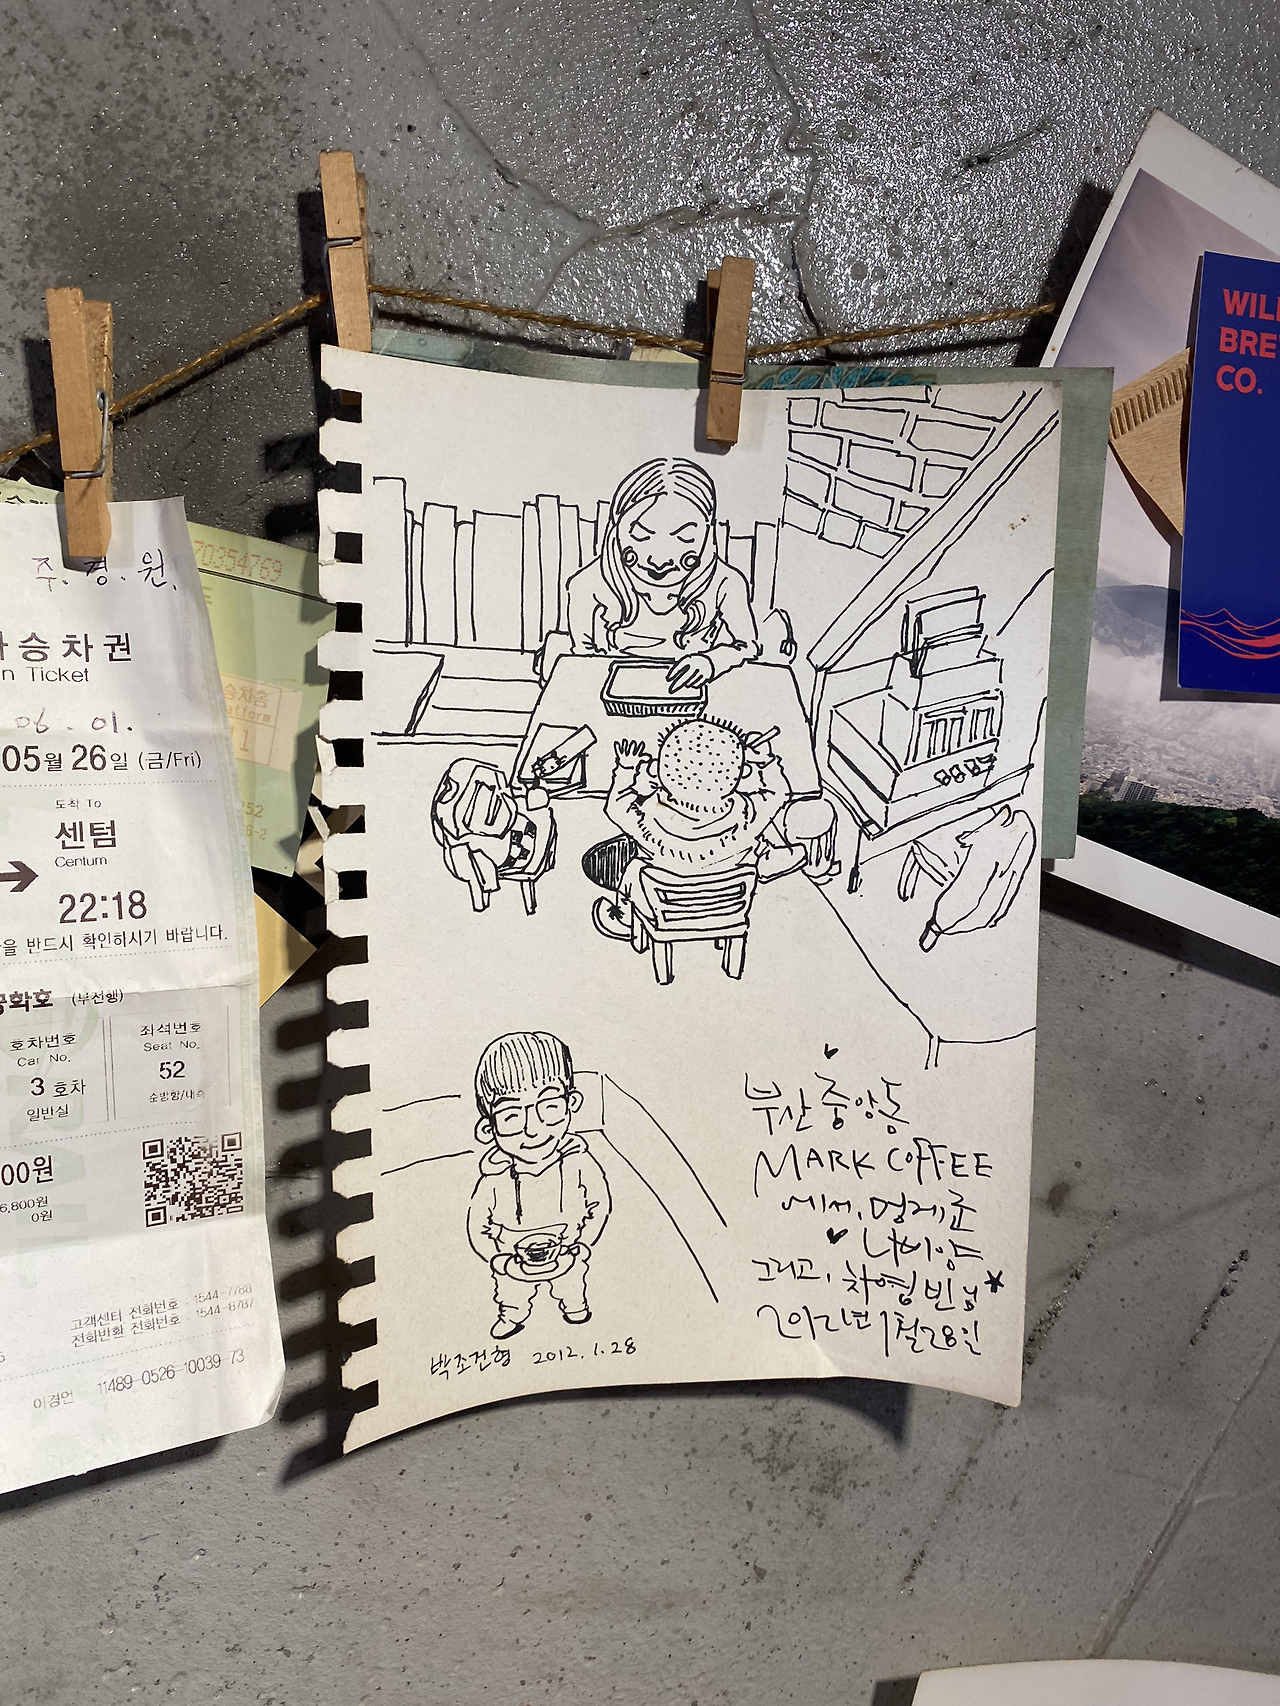 주.경.원.
승차권
n Ticket
06.01.
05월 26일 (금/Fri)
도착 To
센텀
Centum
22:18
을 반드시 확인하시기 바랍니다.
화호 (부전행)
호차번호
Car No.
3 호차
일반실
좌석번호
Seat No.
52
순방향/내측
00원
6,800원
0원
고객센터 전화번호 1544-7788
전화반환 전화번호 1544-8787
이경언 11489-0526-10039-73
70354769
승차홈
atform
1
부산 중앙동
MARK COFFEE
에서, 명제준
나비양
그리고, 차영빈님
2012년 1월 28일
박조건형 2012.1.28
WIL
BRE
CO.